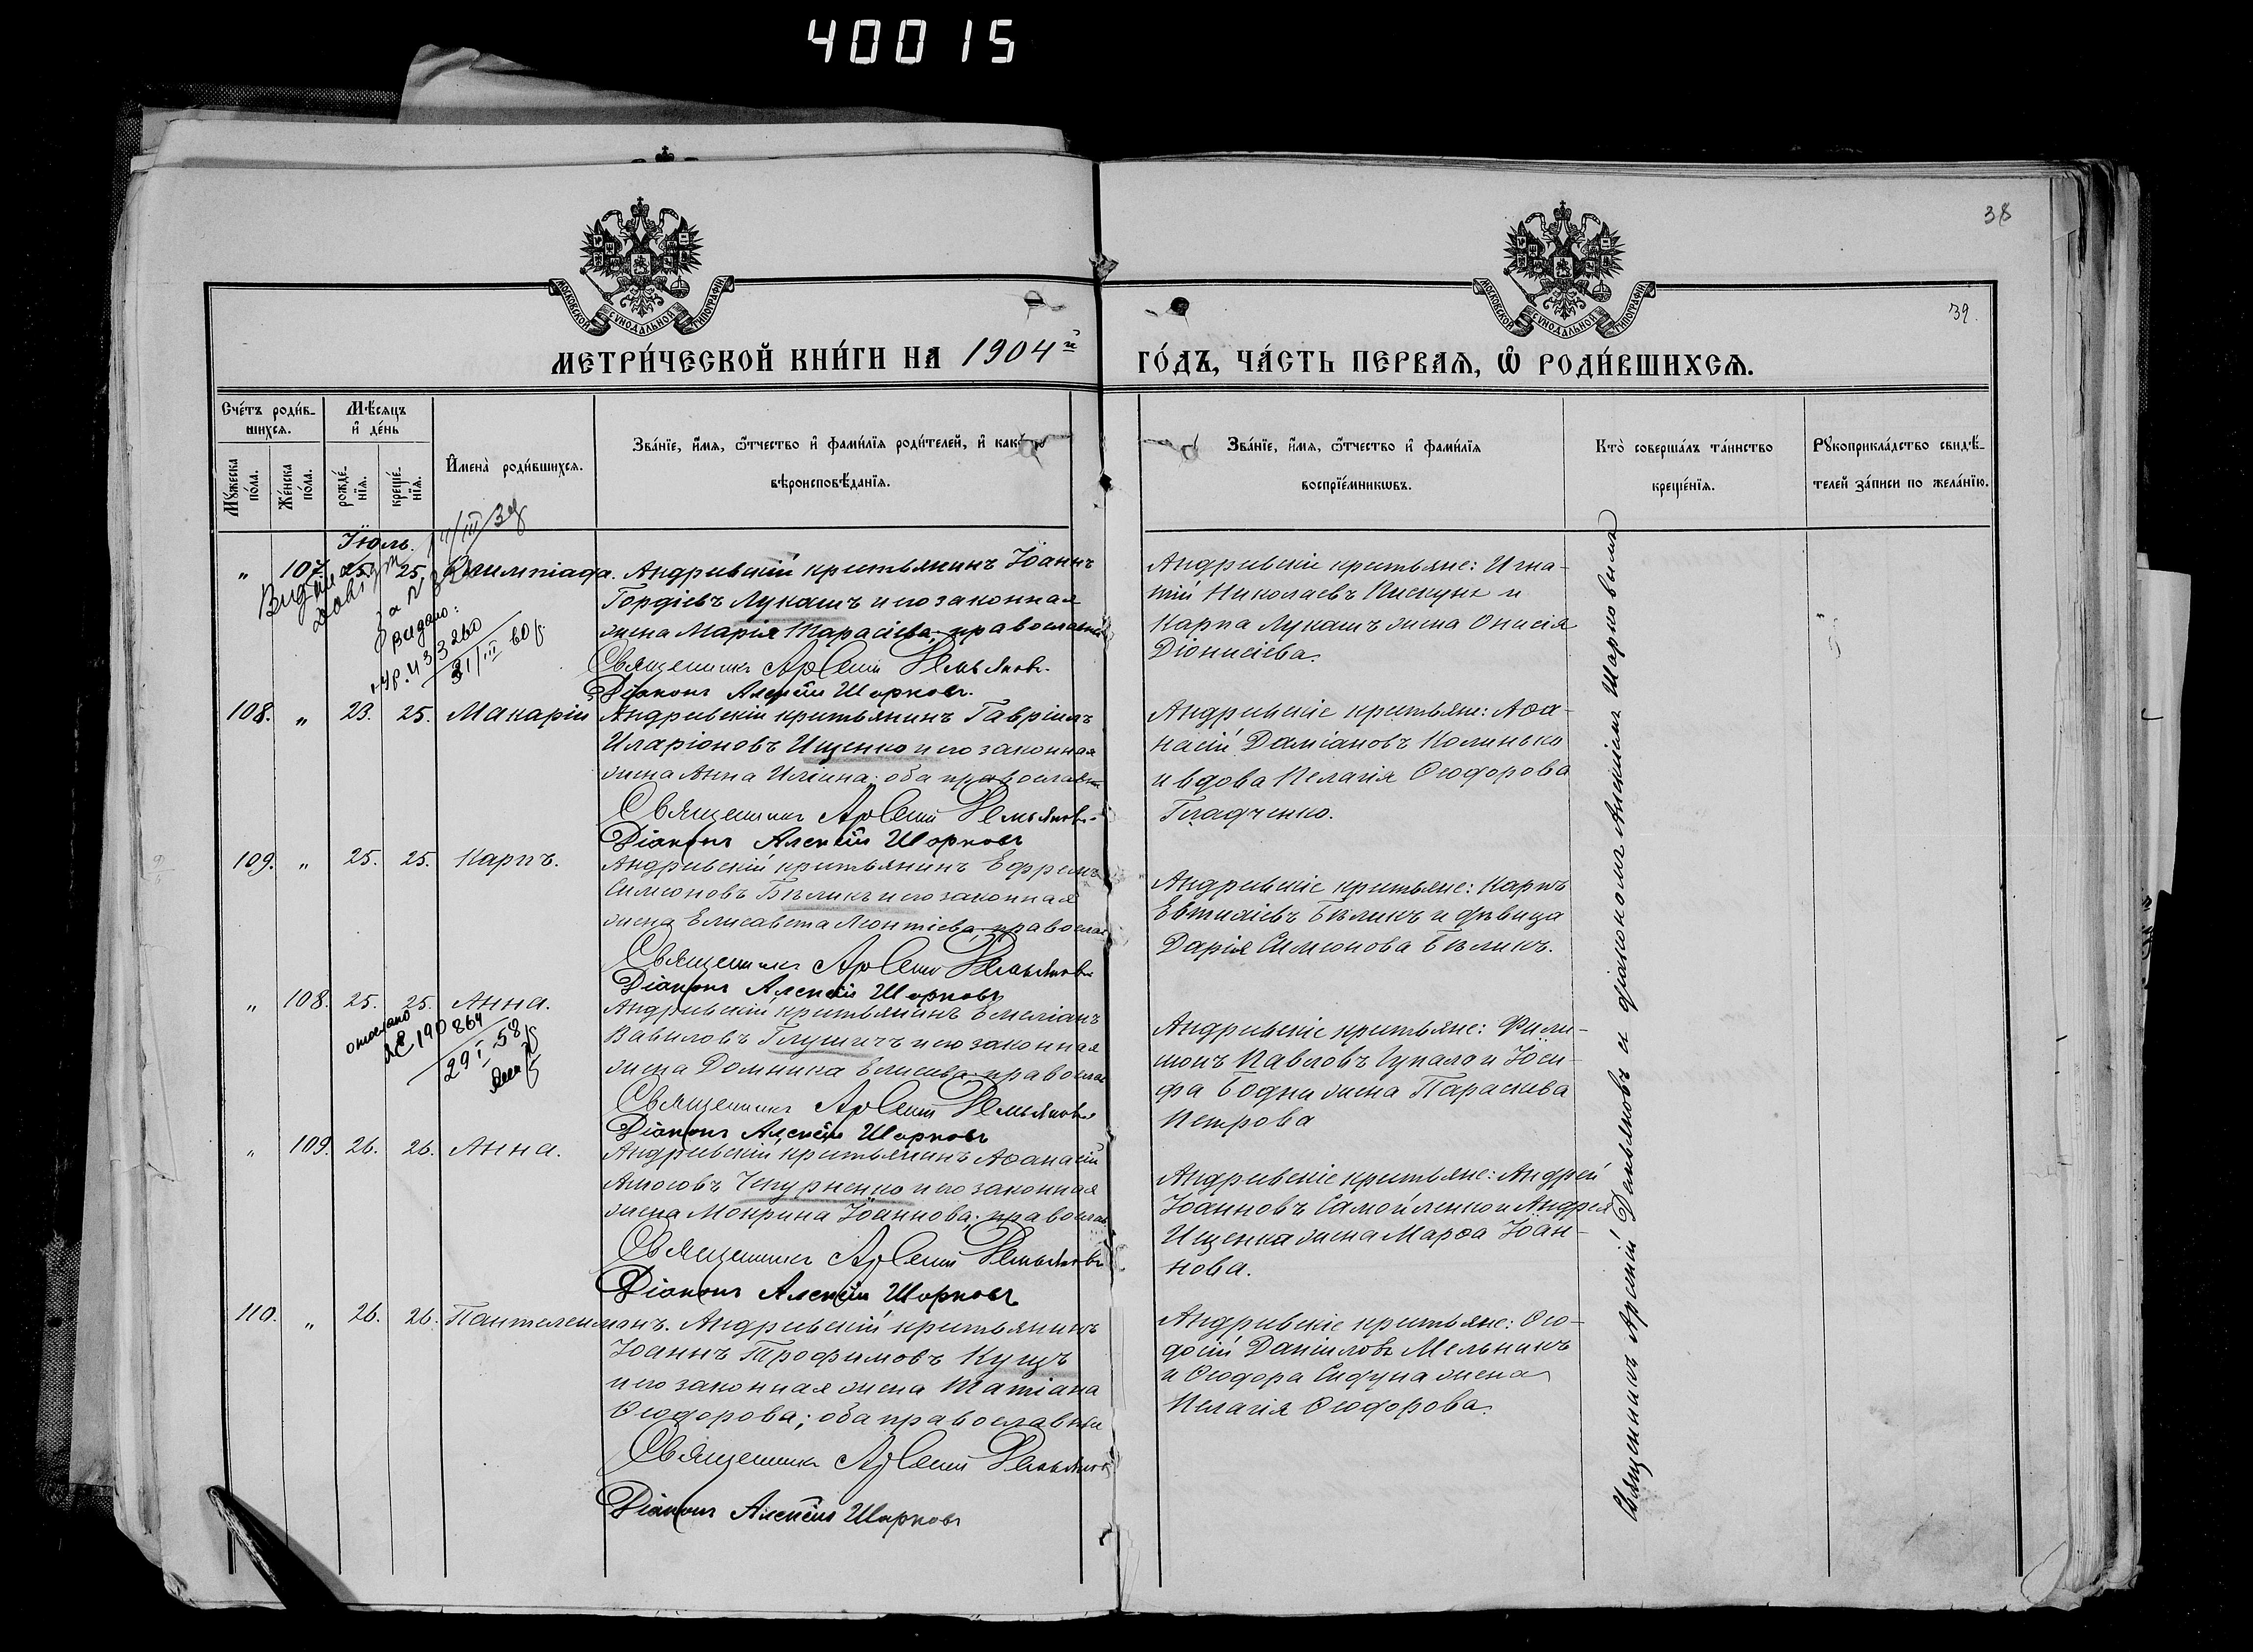 40015
38
39.
МОСКОВСКОЙ СѴНОДАЛЬНОЙ ТИПОГРАФІИ
МОСКОВСКОЙ СѴНОДАЛЬНОЙ ТИПОГРАФІИ
МЕТРИ́ЧЕСКОЙ КНИ́ГИ НА 1904й ГО́ДЪ, ЧА́СТЬ ПЕРВАЯ, Ѽ РОДИ́ВШИХСѦ.
Сче́тъ роди́в-
шихся.
Мѣ́сяцъ
и҆ де́нь
Мꙋ́жеска
по́ла.
Же́нска
по́ла.
рожде́-
нїя.
креще́-
нїя.
И҆мена̀ роди́вшихся.
Зва́нїе, и҆́мя, ѻ҆́тчество и҆ фами́лїя роди́телей, и҆ како́гѡ
вѣроисповѣ́данїя.
Зва́нїе, и҆́мя, ѻ҆́тчество и҆ фами́лїя
воспрїе́мникѡвъ.
Кто̀ соверша́лъ та́инство
креще́нїя.
Рꙋкоприкла́дство свидѣ́-
телей за́писи по жела́нїю.
Іюль.
" 107 25 25 Олимпіада. Андреевскій крестьянинъ Іоаннъ
Гордіевъ Лукашъ и его законная
жена Марія Тарасіева; православн
Священникъ Арсеній Демьяновъ.
Діаконъ Алексій Шарковъ.
Андреевскіе крестьяне: Игна-
тій Николаевъ Пискунъ и
Карпа Лукашъ жена Онисія
Діонисіева.
Видано:
433260
31/III 60
108. " 23. 25. Макарій Андреевскій крестьянинъ Гавріилъ
Иларіоновъ Ищенко и его законная
жена Анна Иліина; оба православн
Священникъ Арсеній Демьяновъ.
Діаконъ Алексій Шарковъ
Андреевскіе крестьяне: Аѳа-
насій Даміановъ Колинько
и вдова Пелагія Ѳеодорова
Гладченко.
109. " 25. 25. Карпъ. Андреевскій крестьянинъ Ефремъ
Симеоновъ Бѣликъ и его законная
жена Елисавета Леонтіева; православ
Священникъ Арсеній Демьяновъ
Діаконъ Алексій Шарковъ
Андреевскіе крестьяне: Карпъ
Евтихіевъ Бѣликъ и дѣвица
Дарія Симеонова Бѣликъ.
" 108. 25. 25. Анна. Андреевскій крестьянинъ Емеліанъ
Вавиловъ Глушичъ и его законная
жена Домника Елисеева; православ
Священникъ Арсеній Демьяновъ
Діаконъ Алексій Шарковъ
Андреевскіе крестьяне: Фили-
монъ Павловъ Цупало и Іоси-
фа Бодни жена Параскева
Петрова
№ 190864
29 I 58
" 109. 26. 26. Анна. Андреевскій крестьянинъ Аѳанасій
Амосовъ Чепурненко и его законная
жена Мокрина Іоаннова; православ
Священникъ Арсеній Демьяновъ
Діаконъ Алексій Шарковъ
Андреевскіе крестьяне: Андрей
Іоанновъ Самойленко и Андрея
Ищенка жена Марѳа Іоан-
нова.
110. " 26. 26. Пантелеимонъ. Андреевскій крестьянинъ
Іоаннъ Трофимовъ Кущъ
и его законная жена Татіана
Ѳеодорова; оба православны
Священникъ Арсеній Демьяновъ
Діаконъ Алексій Шарковъ
Андреевскіе крестьяне: Ѳео-
досій Даніиловъ Мельникъ
и Ѳеодора жена
Пелагія Ѳеодорова.
Священникъ Арсеній Демьяновъ и діакономъ Алексіемъ Шарковымъ